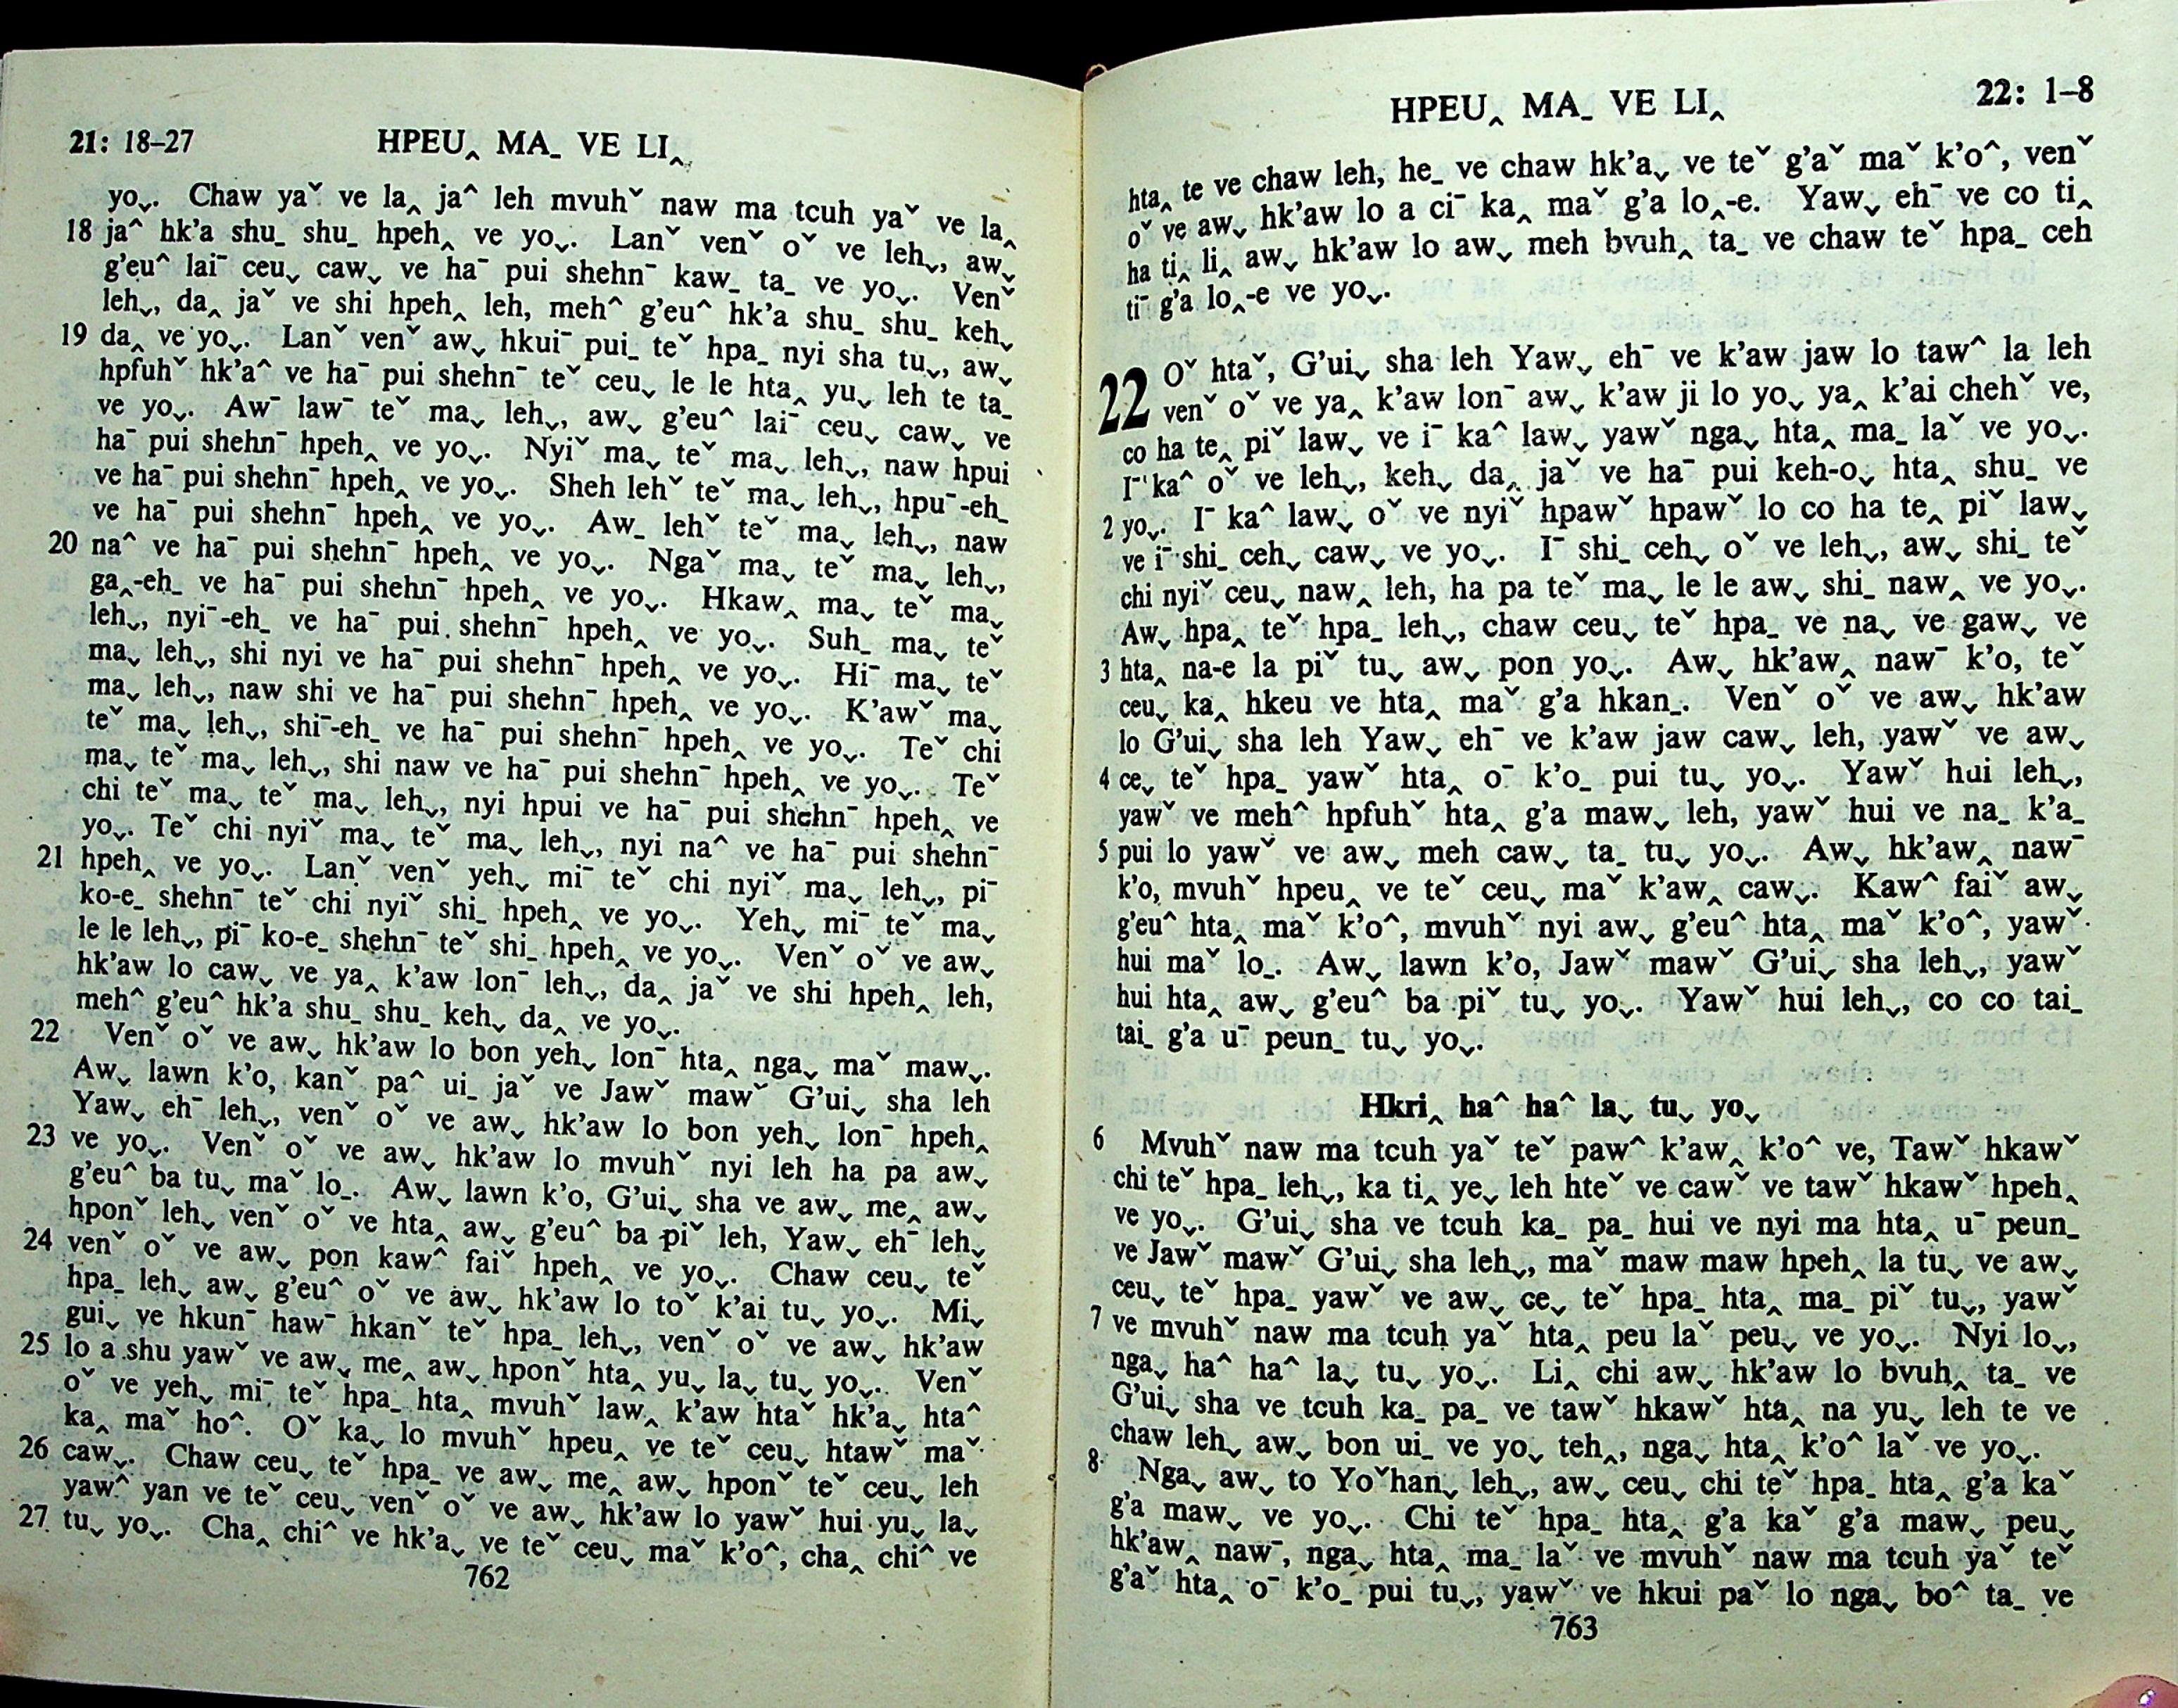 21: 18–27 HPEU‸ MA_ VE LI‸
yoˬ. Chaw yaˇ ve la‸ ja^ leh mvuhˇ naw ma tcuh yaˇ ve la‸
18 ja^ hk’a shu_ shu_ hpeh‸ ve yoˬ. Lanˇ venˇ oˇ ve lehˬ, awˬ
g’eu^ laiˉ ceuˬ cawˬ ve haˉ pui shehnˉ kaw_ ta_ ve yoˬ. Venˇ
lehˬ, da‸ jaˇ ve shi hpeh‸ leh, meh^ g’eu^ hk’a shu_ shu_ kehˬ
19 da‸ ve yoˬ. Lanˇ venˇ awˬ hkuiˉ pui_ teˇ hpa_ nyi sha tuˬ, awˬ
hpfuhˇ hk’a^ ve haˉ pui shehnˉ teˇ ceuˬ le le hta‸ yuˬ leh te ta_
ve yoˬ. Awˉ lawˉ teˇ maˬ lehˬ, awˬ g’eu^ laiˉ ceuˬ cawˬ ve
haˉ pui shehnˉ hpeh‸ ve yoˬ. Nyiˇ maˬ teˇ maˬ lehˬ, naw hpui
ve haˉ pui shehnˉ hpeh‸ ve yoˬ. Sheh lehˇ teˇ maˬ lehˬ, hpuˉ-eh_
ve haˉ pui shehnˉ hpeh‸ ve yoˬ. Aw_ lehˇ teˇ maˬ lehˬ, naw
20 na^ ve haˉ pui shehnˉ hpeh‸ ve yoˬ. Ngaˇ maˬ teˇ maˬ lehˬ,
ga‸-eh_ ve haˉ pui shehnˉ hpeh‸ ve yoˬ. Hkaw‸ maˬ teˇ maˬ
lehˬ, nyiˉ-eh_ ve haˉ pui shehnˉ hpeh‸ ve yoˬ. Suh_ maˬ teˇ
maˬ lehˬ, shi nyi ve haˉ pui shehnˉ hpeh‸ ve yoˬ. Hiˉ maˬ teˇ
maˬ lehˬ, naw shi ve haˉ pui shehnˉ hpeh‸ ve yoˬ. K’awˇ maˬ
teˇ maˬ lehˬ, shiˉ-eh_ ve haˉ pui shehnˉ hpeh‸ ve yoˬ. Teˇ chi
maˬ teˇ maˬ lehˬ, shi naw ve haˉ pui shehnˉ hpeh‸ ve yoˬ. Teˇ
chi teˇ maˬ teˇ maˬ lehˬ, nyi hpui ve haˉ pui shehnˉ hpeh‸ ve
yoˬ. Teˇ chi nyiˇ maˬ teˇ maˬ lehˬ, nyi na^ ve haˉ pui shehnˉ
21 hpeh‸ ve yoˬ. Lanˇ venˇ yehˬ miˉ teˇ chi nyiˇ maˬ lehˬ, piˉ
ko-e_ shehnˉ teˇ chi nyiˇ shi_ hpeh‸ ve yoˬ. Yehˬ miˉ teˇ maˬ
le le lehˬ, piˉ ko-e_ shehnˉ teˇ shi_ hpeh‸ ve yoˬ. Venˇ oˇ ve awˬ
hk’aw lo cawˬ ve ya‸ k’aw lonˉ lehˬ, da‸ jaˇ ve shi hpeh‸ leh,
meh^ g’eu^ hk’a shu_ shu_ kehˬ da‸ ve yoˬ.
22 Venˇ oˇ ve awˬ hk’aw lo bon yehˬ lonˉ hta‸ ngaˬ maˇ mawˬ.
Awˬ lawn k’o, kanˇ pa^ ui_ jaˇ ve Jawˇ mawˇ G’uiˬ sha leh
Yawˬ ehˉ lehˬ, venˇ oˇ ve awˬ hk’aw lo bon yehˬ lonˉ hpeh‸
23 ve yoˬ. Venˇ oˇ ve awˬ hk’aw lo mvuhˇ nyi leh ha pa awˬ
g’eu^ ba tuˬ maˇ lo_. Awˬ lawn k’o, G’uiˬ sha ve awˬ me‸ awˬ
hponˇ lehˬ venˇ oˇ ve hta‸ awˬ g’eu^ ba piˇ leh, Yawˬ ehˉ lehˬ
24 venˇ oˇ ve awˬ pon kaw^ faiˇ hpeh‸ ve yoˬ. Chaw ceuˬ teˇ
hpa_ lehˬ awˬ g’eu^ oˇ ve awˬ hk’aw lo toˇ k’ai tuˬ yoˬ. Miˬ
guiˬ ve hkunˉ hawˉ hkanˇ teˇ hpa_ lehˬ, venˇ oˇ ve awˬ hk’aw
25 lo a shu yawˇ ve awˬ me‸ awˬ hponˇ hta‸ yuˬ laˬ tuˬ yoˬ. Venˇ
oˇ ve yehˬ miˉ teˇ hpa_ hta‸ mvuhˇ law‸ k’aw htaˇ hk’aˬ hta^
ka‸ maˇ ho^. Oˇ kaˬ lo mvuhˇ hpeu‸ ve teˇ ceuˬ htawˇ maˇ
26 cawˬ. Chaw ceuˬ teˇ hpa_ ve awˬ me‸ awˬ hponˇ teˇ ceuˬ leh
yaw^ yan ve teˇ ceuˬ venˇ oˇ ve awˬ hk’aw lo yawˇ hui yuˬ laˬ
27 tuˬ yoˬ. Cha‸ chi^ ve hk’aˬ ve teˇ ceuˬ maˇ k’o^, cha‸ chi^ ve
762
HPEU‸ MA_ VE LI‸ 22: 1–8
hta‸ te ve chaw leh, he_ ve chaw hk’aˬ ve teˇ g’aˇ maˇ k’o^, venˇ
oˇ ve awˬ hk’aw lo a ciˉ ka‸ maˇ g’a lo‸-e. Yawˬ ehˉ ve co ti‸
ha ti‸ li‸ awˬ hk’aw lo awˬ meh bvuh‸ ta_ ve chaw teˇ hpa_ ceh
tiˉ g’a lo‸-e ve yoˬ.
22 Oˇ htaˇ, G’uiˬ sha leh Yawˬ ehˉ ve k’aw jaw lo taw^ la leh
venˇ oˇ ve ya‸ k’aw lonˉ awˬ k’aw ji lo yoˬ ya‸ k’ai chehˇ ve,
co ha te‸ piˇ lawˬ ve iˉ ka^ lawˬ yawˇ ngaˬ hta‸ ma_ laˇ ve yoˬ.
Iˉ ka^ oˇ ve lehˬ, kehˬ da‸ jaˇ ve haˉ pui keh-oˬ hta‸ shu_ ve
2 yoˬ. Iˉ ka^ lawˬ oˇ ve nyiˇ hpawˇ hpawˇ lo co ha te‸ piˇ lawˬ
ve iˉ shi_ cehˬ cawˬ ve yoˬ. Iˉ shi_ cehˬ oˇ ve lehˬ, awˬ shi_ teˇ
chi nyiˇ ceuˬ naw‸ leh, ha pa teˇ maˬ le le awˬ shi_ naw‸ ve yoˬ.
Awˬ hpa‸ teˇ hpa_ lehˬ, chaw ceuˬ teˇ hpa_ ve naˬ ve gawˬ ve
3 hta‸ na-e la piˇ tuˬ awˬ pon yoˬ. Awˬ hk’aw‸ nawˉ k’o, teˇ
ceuˬ ka‸ hkeu ve hta‸ maˇ g’a hkan_. Venˇ oˇ ve awˬ hk’aw
lo G’uiˬ sha leh Yawˬ ehˉ ve k’aw jaw cawˬ leh, yawˇ ve awˬ
4 ceˬ teˇ hpa_ yawˇ hta‸ oˉ k’o_ pui tuˬ yoˬ. Yawˇ hui lehˬ,
yawˇ ve meh^ hpfuhˇ hta‸ g’a mawˬ leh, yawˇ hui ve na_ k’a_
5 pui lo yawˇ ve awˬ meh cawˬ ta_ tuˬ yoˬ. Awˬ hk’aw‸ nawˉ
k’o, mvuhˇ hpeu‸ ve teˇ ceuˬ maˇ k’aw‸ cawˬ. Kaw^ faiˇ awˬ
g’eu^ hta‸ maˇ k’o^, mvuhˇ nyi awˬ g’eu^ hta‸ maˇ k’o^, yawˇ
hui maˇ lo_. Awˬ lawn k’o, Jawˇ mawˇ G’uiˬ sha lehˬ, yawˇ
hui hta‸ awˬ g’eu^ ba piˇ tuˬ yoˬ. Yawˇ hui lehˬ, co co tai_
tai_ g’a uˉ peun_ tuˬ yoˬ.
Hkri‸ ha^ ha^ laˬ tuˬ yoˬ
6 Mvuhˇ naw ma tcuh yaˇ teˇ paw^ k’aw‸ k’o^ ve, Tawˇ hkawˇ
chi teˇ hpa_ lehˬ, ka ti‸ yeˬ leh hteˇ ve cawˇ ve tawˇ hkawˇ hpeh‸
ve yoˬ. G’uiˬ sha ve tcuh ka_ pa_ hui ve nyi ma hta‸ uˉ peun_
ve Jawˇ mawˇ G’uiˬ sha lehˬ, maˇ maw maw hpeh‸ la tuˬ ve awˬ
ceuˬ teˇ hpa_ yawˇ ve awˬ ceˬ teˇ hpa_ hta‸ ma_ piˇ tuˬ, yawˇ
7 ve mvuhˇ naw ma tcuh yaˇ hta‸ peu laˇ peuˬ ve yoˬ. Nyi loˬ,
ngaˬ ha^ ha^ laˬ tuˬ yoˬ. Li‸ chi awˬ hk’aw lo bvuh‸ ta_ ve
G’uiˬ sha ve tcuh ka_ pa_ ve tawˇ hkawˇ hta‸ na yuˬ leh te ve
chaw lehˬ awˬ bon ui_ ve yoˬ teh‸, ngaˬ hta‸ k’o^ laˇ ve yoˬ.
8 Ngaˬ awˬ to Yoˇhanˬ lehˬ, awˬ ceuˬ chi teˇ hpa_ hta‸ g’a kaˇ
g’a mawˬ ve yoˬ. Chi teˇ hpa_ hta‸ g’a kaˇ g’a mawˬ peuˬ
hk’aw‸ nawˉ, ngaˬ hta‸ ma_ laˇ ve mvuhˇ naw ma tcuh yaˇ teˇ
g’aˇ hta‸ oˉ k’o_ pui tuˬ, yawˇ ve hkui paˇ lo ngaˬ bo^ ta_ ve
763